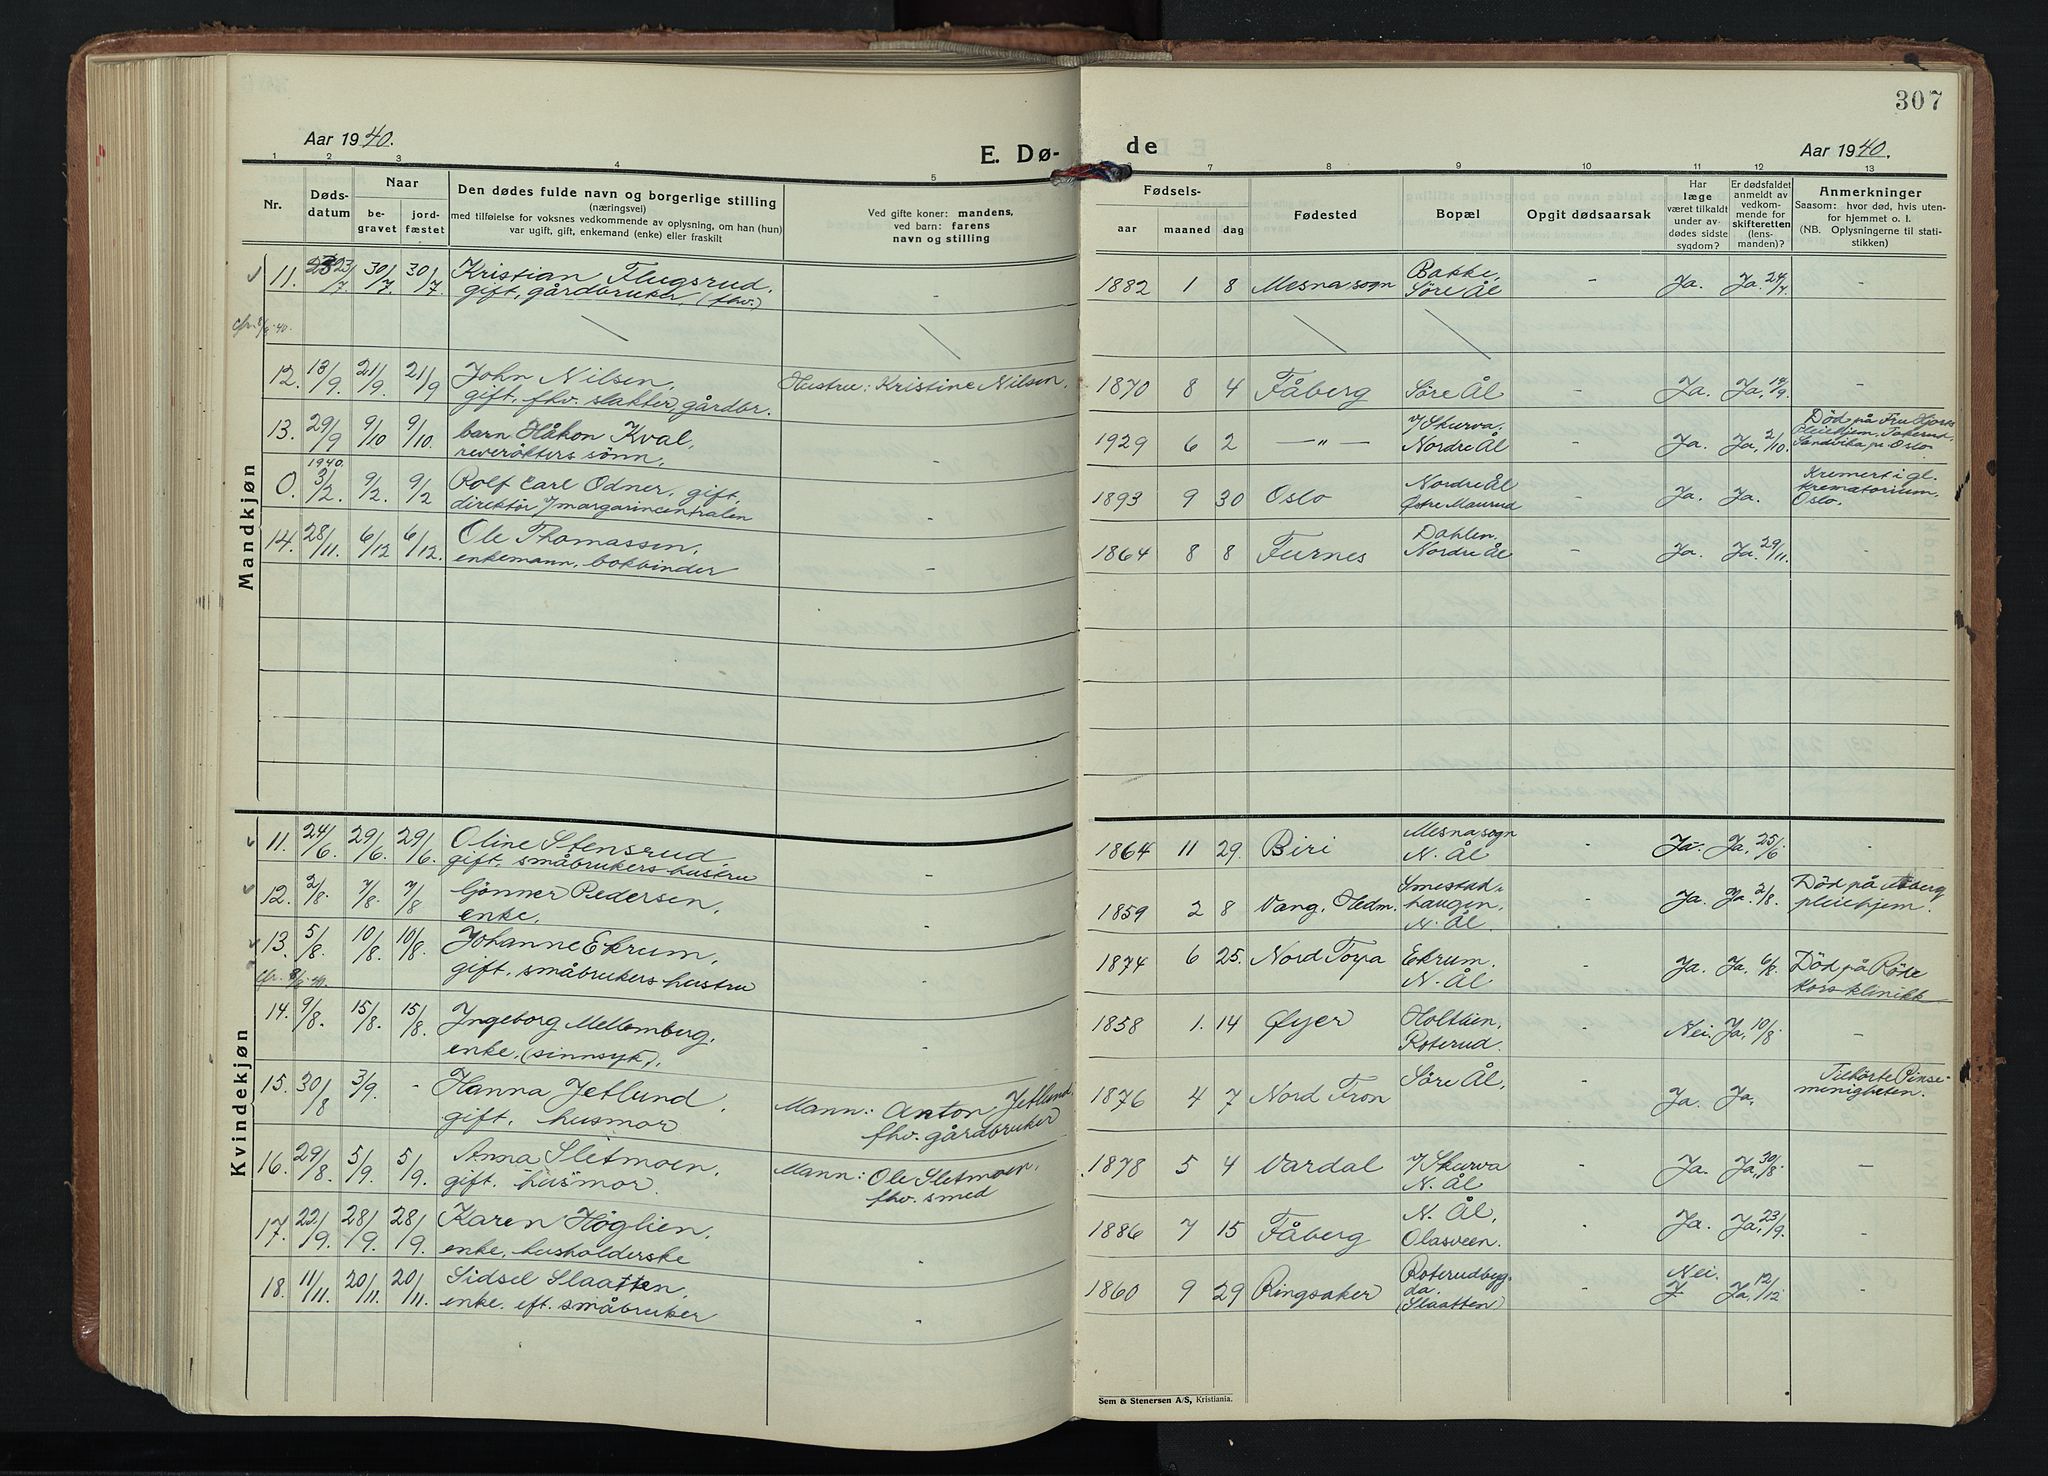 307
Aar 1940.
E. Dø-
de
Aar 1940.
1 2 3 4 5 6 7 8 9 10 11 12 13
Nr.
Døds-
datum
Naar
be-
gravet
jord-
fæstet
Den dødes fulde navn og borgerlige stilling
(næringsvei)
med tilføielse for voksnes vedkommende av oplysning, om han (hun)
var ugift, gift, enkemand (enke) eller fraskilt
Ved gifte koner: mandens,
ved barn: farens
navn og stilling
Fødsels-
aar
maaned
dag
Fødested
Bopæl
Opgit dødsaarsak
Har
læge
været tilkaldt
under av-
dødes sidste
sygdom?
Er dødsfaldet
anmeldt av
vedkom-
mende for
skifteretten
(lens-
manden)?
Anmerkninger
Saasom: hvor død, hvis uten-
for hjemmet o. l.
(NB. Oplysningerne til stati-
stikken)
Mandkjøn
11. 23/7 30/7 30/7 Kristian Flugsrud, - 1882 1 8 Mesna sogn Bakke, - Ja. Ja. 24/7 -
gift, gårdbruker (fhv.) Søre Ål
cfr. 8/6-40.
12. 13/9 21/9 21/9 John Nilsen, Hustru: Kristine Nilsen. 1870 8 4 Fåberg Søre Ål - Ja. Ja, 14/9. -
gift, fhv. slakter, gårdbr.
13. 29/9 9/10 9/10. barn Håkon Kval, - 1929 6 2 —"— v/ Skurva, - Ja. Ja, 2/10. Død på Fru Hjorts
reverøkters sønn, Nordre Ål pleiehjem,
Sandvika pr. Oslo
1940.
0. 3/2. 9/2. 9/2 Rolf Carl Odner, gift, - 1893 9 30 Oslo Nordre Ål - Ja. Ja. Kremert i gl.
direktør v/ margarincentralen Østre Maurud krematorium,
Oslo.
14. 28/11. 6/12 6/12. Ole Thomassen, - 1864 8 8 Furnes Dahlen, - Ja. Ja. 29/11. -
enkemann, bokbinder Nordre Ål
Kvindekjøn
11. 24/6. 29/6. 29/6. Oline Stensrud - 1864 11 29. Biri Mesna sogn - Ja. Ja, 25/6 -
gift, småbrukers hustru N. Ål
12. 2/8. 7/8. 7/8 Gønner Pedersen, - 1859 2 8 Vang, Hedm. Smestad- - Ja. Ja. 2/8. Død på Fåberg
enke, haugen, pleiehjem.
N. Ål.
13. 5/8. 10/8. 10/8. Johanne Ekrum, - 1874 6 25. Nord Torpa Ekrum. - Ja. Ja. 6/8. Død på Røde
gift, småbrukers hustru N. Ål Kors klinikk
cfr. 8/6-40.
14. 9/8. 15/8. 15/8. Ingeborg Mellemberg, - 1858 1. 14 Øyer Holtlien, - Nei. Ja, 10/8 -
enke, (sinnsyk), Roterud.
15. 30/8 3/9. - Hanna Jetlund, Mann: Anton Jetlund 1876 4 7 Nord Fron Søre Ål, - Ja. Ja, Tilhørte Pinse-
gift, husmor fhv. gårdbruker menigheten.
16. 29/8 5/9. 5/9. Anna Sletmoen, Mann: Ole Sletmoen, 1878 5 4 Vardal v/ Skurva - Ja. Ja, 30/8. -
gift, husmor fhv. smed N. Ål
17. 22/9. 28/9. 28/9. Karen Høglien, - 1886 7 15 Fåberg N. Ål, - Ja. Ja, 23/9. -
enke, husholderske Olasveen.
18. 11/11. 20/11. 20/11. Sidsel Slaatten, - 1860 9 29 Ringsaker Roterudbyg- - Nei. Ja, 12/12 -
enke, eft. småbruker da.
(Slaatten)
Sem & Stenersen A/S, Kristiania.